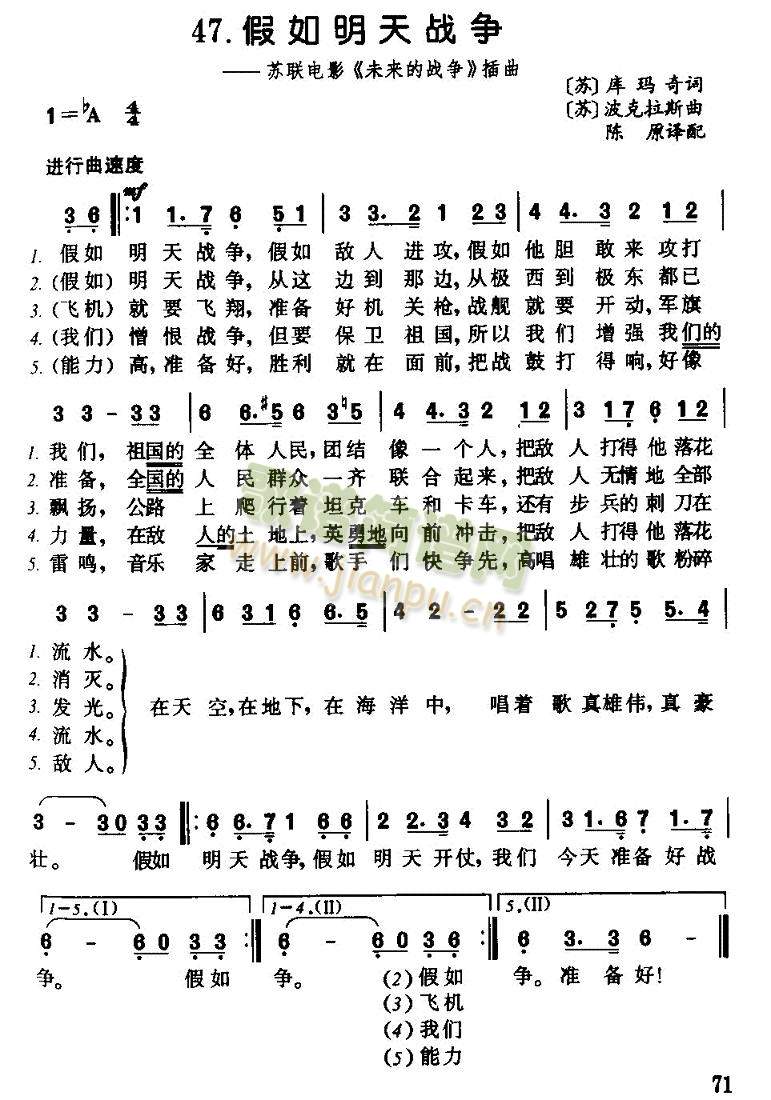 47. 假如明天战争
——苏联电影《未来的战争》插曲
〔苏〕库玛奇词
〔苏〕波克拉斯曲
陈原译配
1=♭A 4/4
进行曲速度
mf
3 6 ‖: 1 1. 7 6 5 1 | 3 3. 2 1 2 3 | 4 4. 3 2 1 2 |
1. 假如 明天战争,假如 敌人 进攻,假如他胆 敢来攻打
2. (假如) 明天战争,从这 边到 那边,从极西到 极东都已
3. (飞机) 就要飞翔,准备 好机 关枪,战舰就要 开动,军旗
4. (我们) 憎恨战争,但要 保卫 祖国,所以我们 增强我们的
5. (能力) 高,准备好,胜利 就在 面前,把战鼓打 得响,好像
3 3 - 3 3 | 6 6. ♯5 6 3 ♮5 | 4 4. 3 2 1 2 | 3 1 7 6 1 2 |
1. 我们, 祖国的 全体人民,团结 像一个人,把敌人 打得他落花
2. 准备, 全国的 人民群众一齐 联合起来,把敌人 无情地全部
3. 飘扬, 公路 上爬行着坦克 车和卡车,还有步 兵的刺刀在
4. 力量, 在敌 人的土地上,英勇地向前冲击,把敌人 打得他落花
5. 雷鸣, 音乐 家走上前,歌手 们快争先,高唱雄 壮的歌粉碎
3 3 - 3 3 | 6 3 1 6 6. 5 | 4 2 - 2 2 | 5 2 7 5 5. 4 |
1. 流水。
2. 消灭。
3. 发光。 在天 空,在地下,在海洋中, 唱着 歌真雄伟,真豪
4. 流水。
5. 敌人。
3 - 3 0 3 3 ‖: 6 6. 7 1 6 6 | 2 2. 3 4 3 2 | 3 1. 6 7 1. 7 |
壮。 假如 明天战争,假如 明天开仗,我们 今天准备好战
1-5.(I) 1-4.(II) 5.(II)
6 - 6 0 3 3 :‖ 6 - 6 0 3 6 :‖ 6 3. 3 6 - ‖
争。 假如 争。 (2)假如 争。准 备 好!
(3)飞机
(4)我们
(5)能力
歌谱简谱网
www.jianpu.cn
71